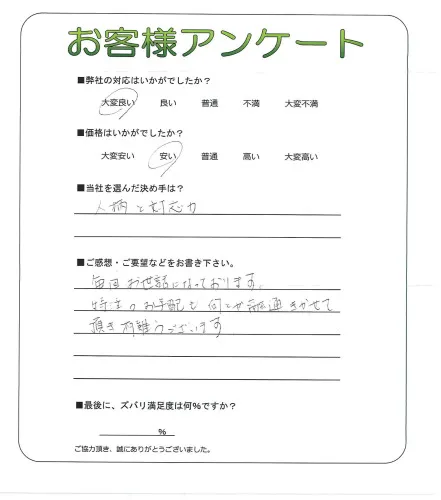 お客様アンケート
■弊社の対応はいかがでしたか?
大変良い 良い 普通 不満 大変不満
■価格はいかがでしたか?
大変安い 安い 普通 高い 大変高い
■当社を選んだ決め手は?
人柄と対応力
■ご感想・ご要望などをお書き下さい。
毎回お世話になっております。
特主のお手配も何とか融通きかせて
頂き有難うございます
■最後に、ズバリ満足度は何%ですか?
%
ご協力頂き、誠にありがとうございました。